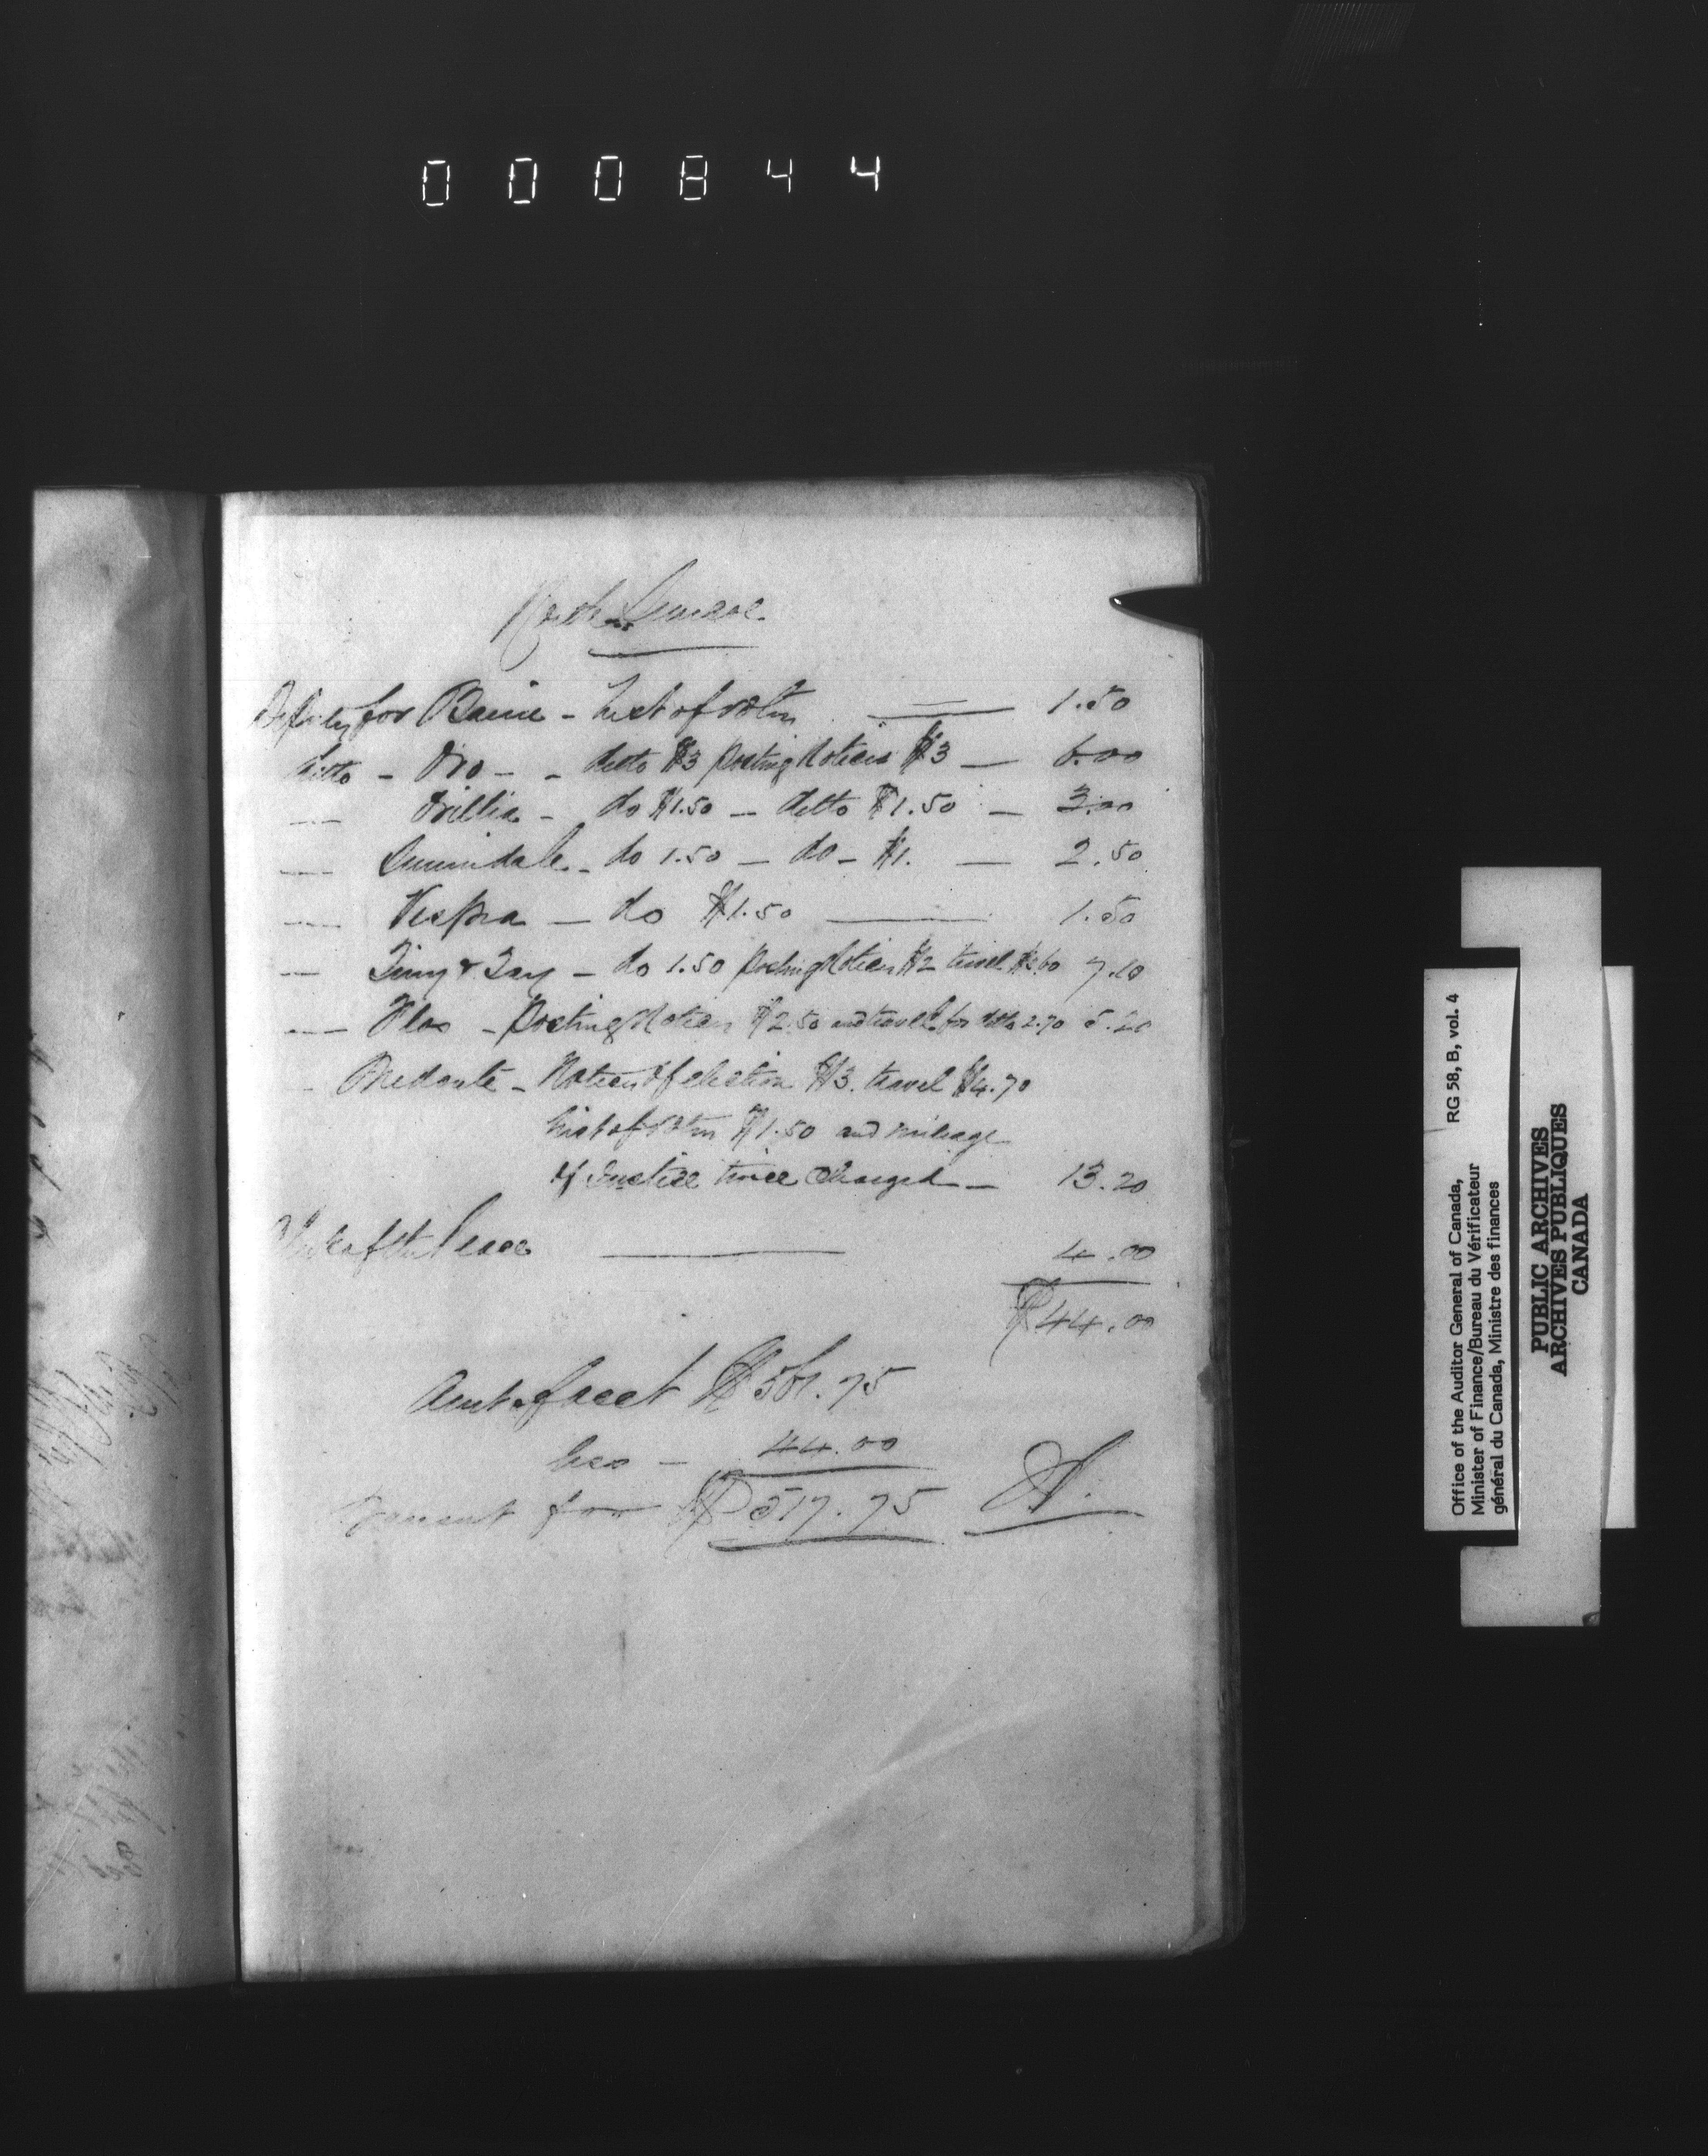 000844
North Simcoe
Deputy for Barrie - List of voters 1.50
ditto - Oro - - ditto $3 posting Notices $3 — 6.00
Orillia - do $1.50 - ditto $1.50 — 3.00
Sunnidale - do 1.50 - do - $1. — 2.50
Vespra - do $1.50 — 1.50
Tiny & Tay - do 1.50 posting Notices $2 travel $3.60 7.10
Flos - posting Notices $2.50 and travel for ditto 2.70 5.20
Medonte - Notices of election $3. travel $4.70
List of voters $1.50 and mileage
of Justice twice charged — 13.20
Clerk of the Peace — 4.00
$44.00
Amt of acct $561.75
Less - 44.00
Warrant for $517.75
Office of the Auditor General of Canada, RG 58, B, vol. 4
Minister of Finance/Bureau du Vérificateur
général du Canada, Ministre des finances
PUBLIC ARCHIVES
ARCHIVES PUBLIQUES
CANADA